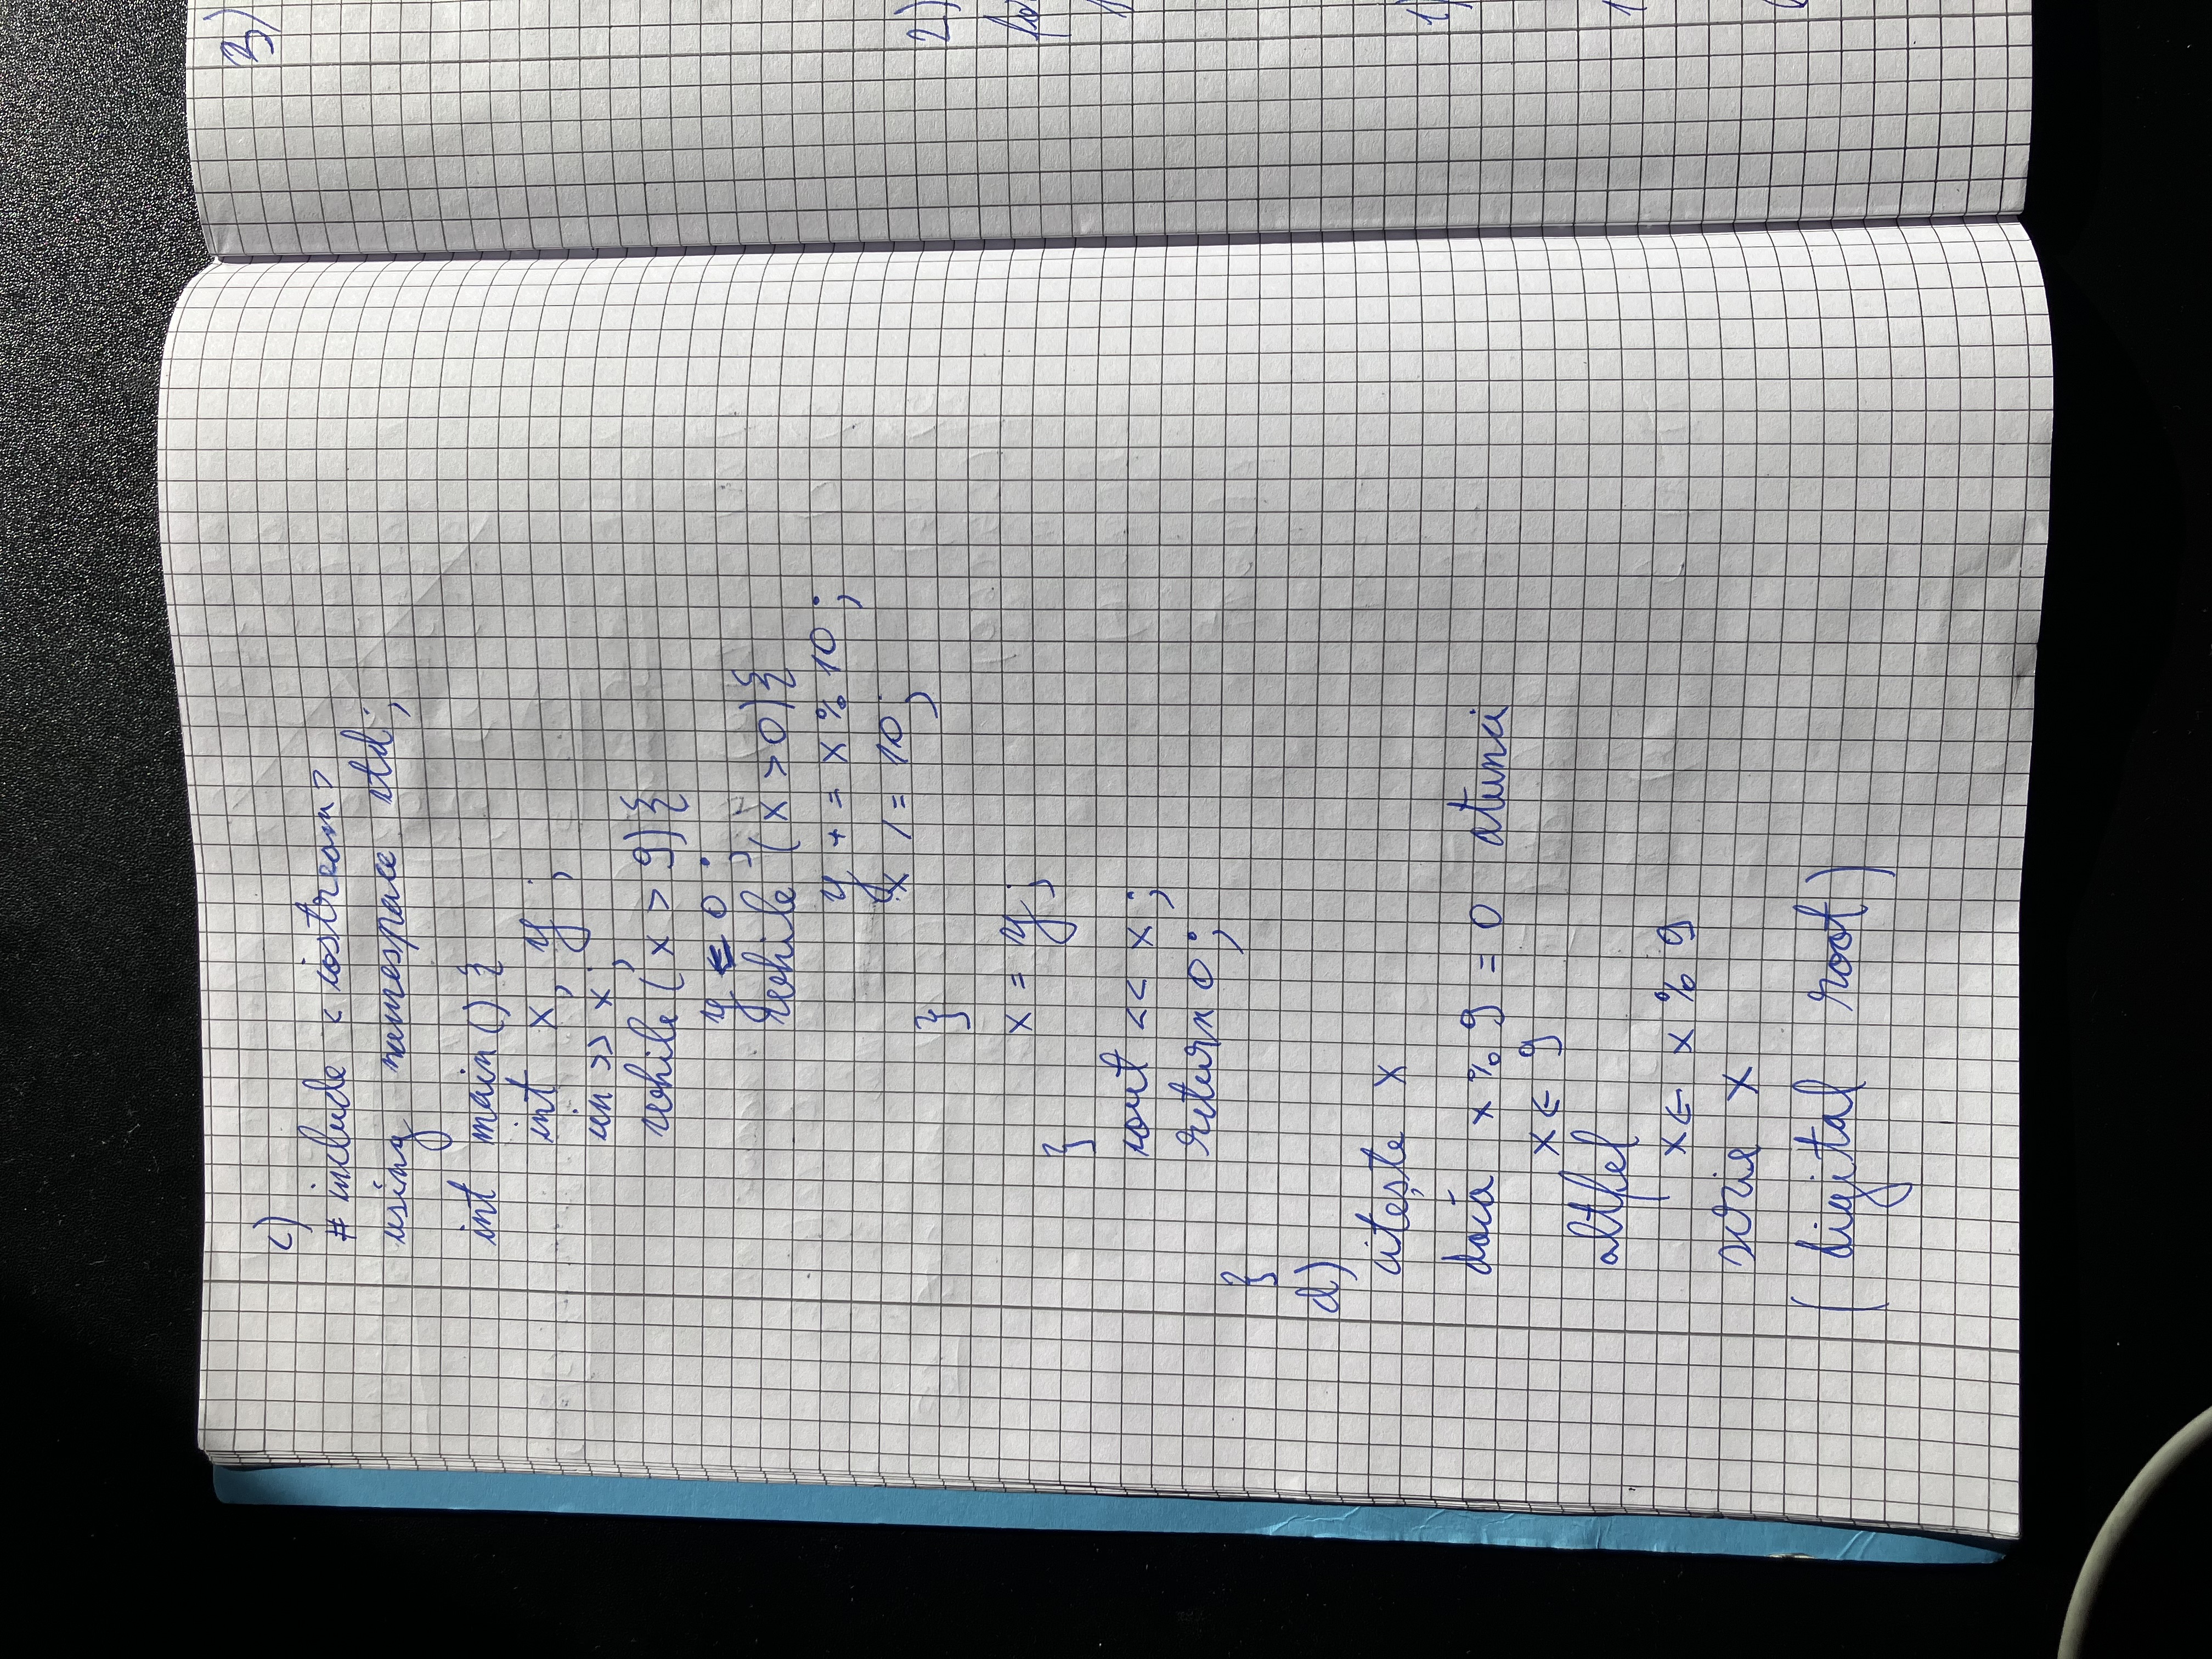 c)
# include <iostream>
using namespace std;
int main() {
int x, y ;
cin >> x ;
while (x > 9) {
y = 0 ;
while (x > 0) {
y += x % 10 ;
x /= 10 ;
}
x = y ;
}
cout << x ;
return 0 ;
}
d)
citește x
dacă x % 9 = 0 atunci
x ← 9
altfel
x ← x % 9
scrie x
(digital root)
3)
2)
1)